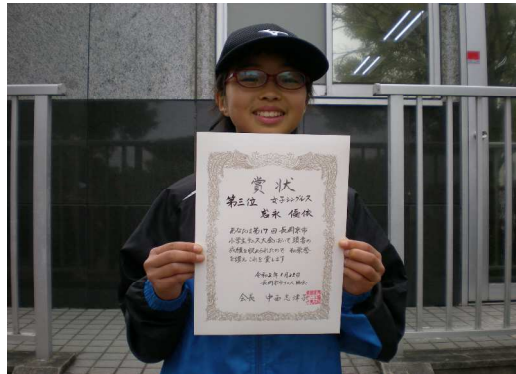 賞状
第三位 女子シングルス
岩永 優依
あなたは第17回長岡京市
小学生テニス大会において頭書の
成績を収められたので その栄誉
を讃え これを賞します
会長 中西志津子